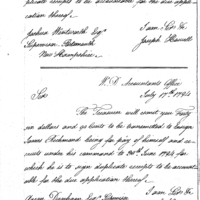 plicate receipts to be accountable for the due appli-
cation thereof.
I am Sir &c
Joshua Wentworth Esqr
Joseph Howell
Supervisor Portsmouth
New Hampshire
W. D. Accountants Office
July 17th 1794
Sir
The Treasurer will remit you Forty
one dollars and 90 Cents to be transmitted to Ensign
James Richmond being for pay of himself and re-
cruits under his command to 30th June 1794 for
which he is to sign duplicate receipts to be account-
able for the due application thereof.
I am Sir &c